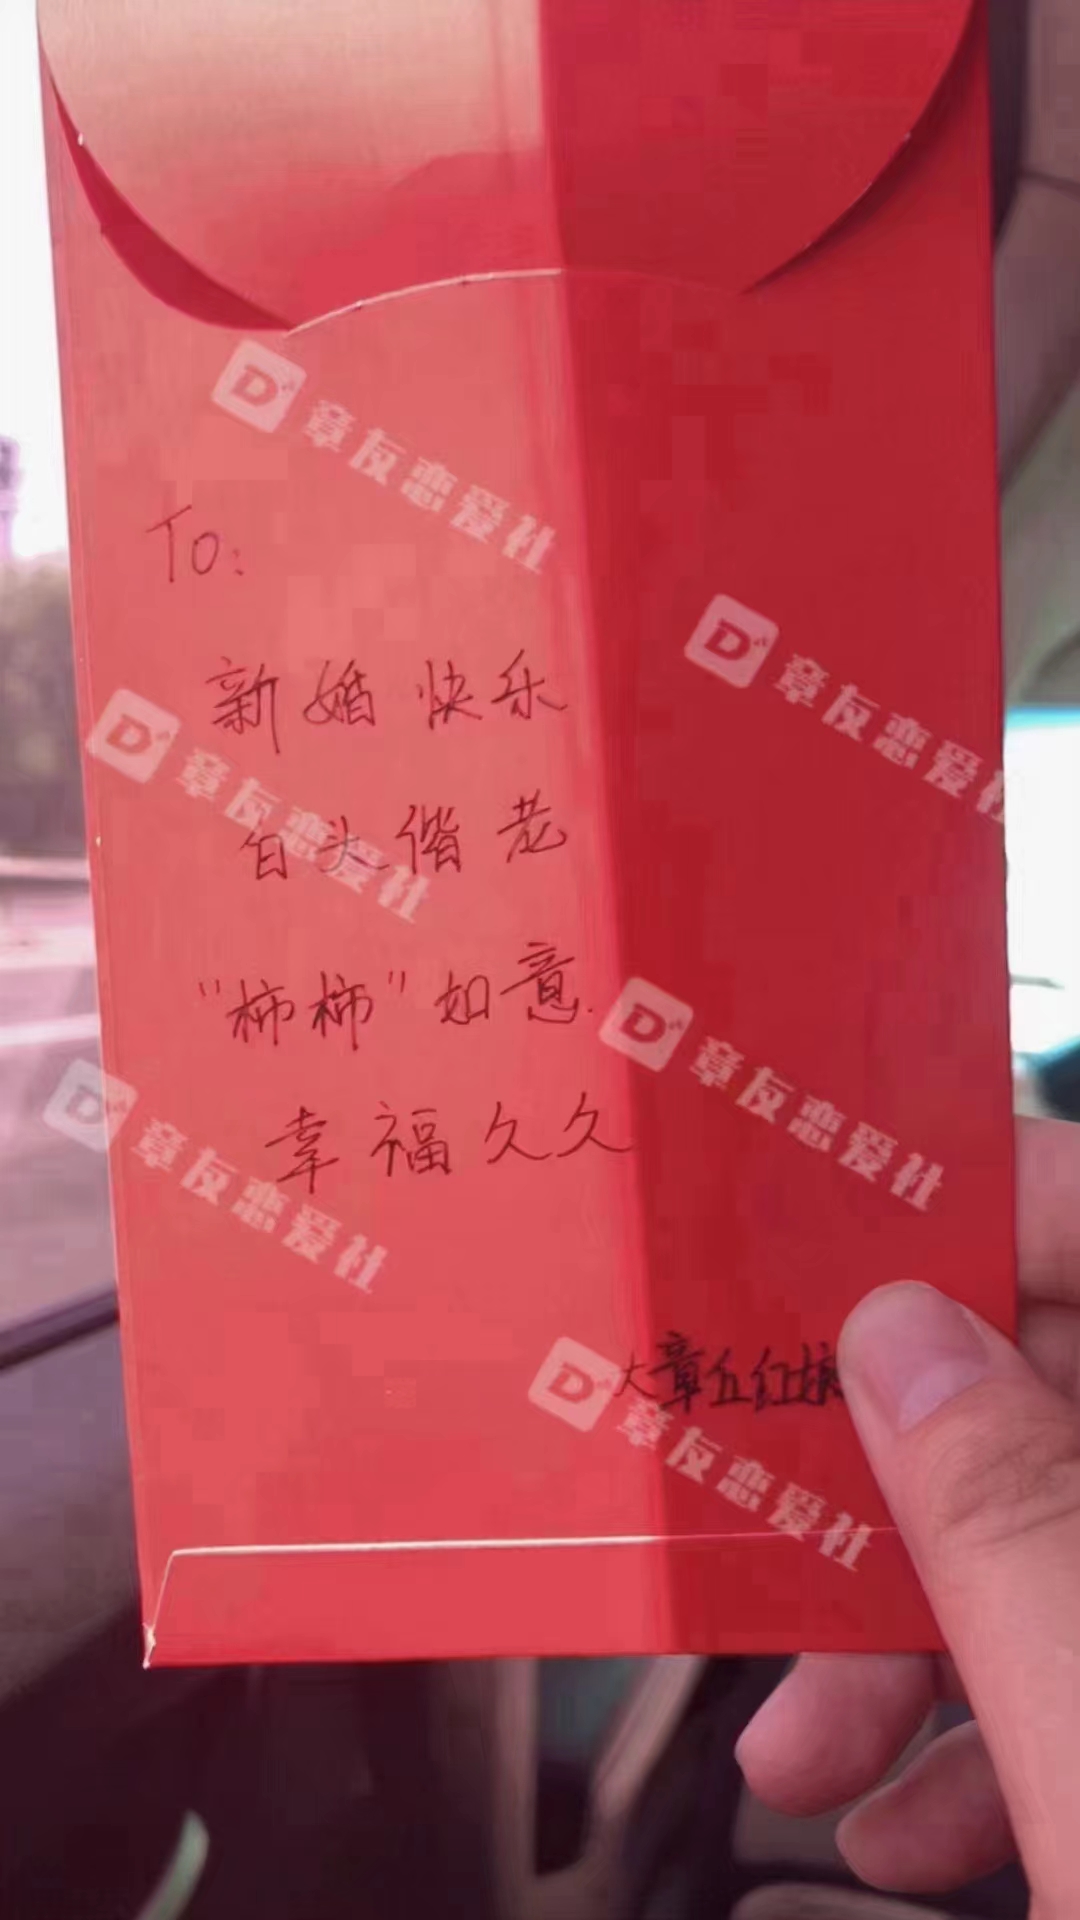 To:
新婚快乐
白头偕老
"柿柿"如意.
幸福久久
大章丘红娘
D 章友恋爱社
D 章友恋爱社
D 章友恋爱社
D 章友恋爱社
D 章友恋爱社
D 章友恋爱社